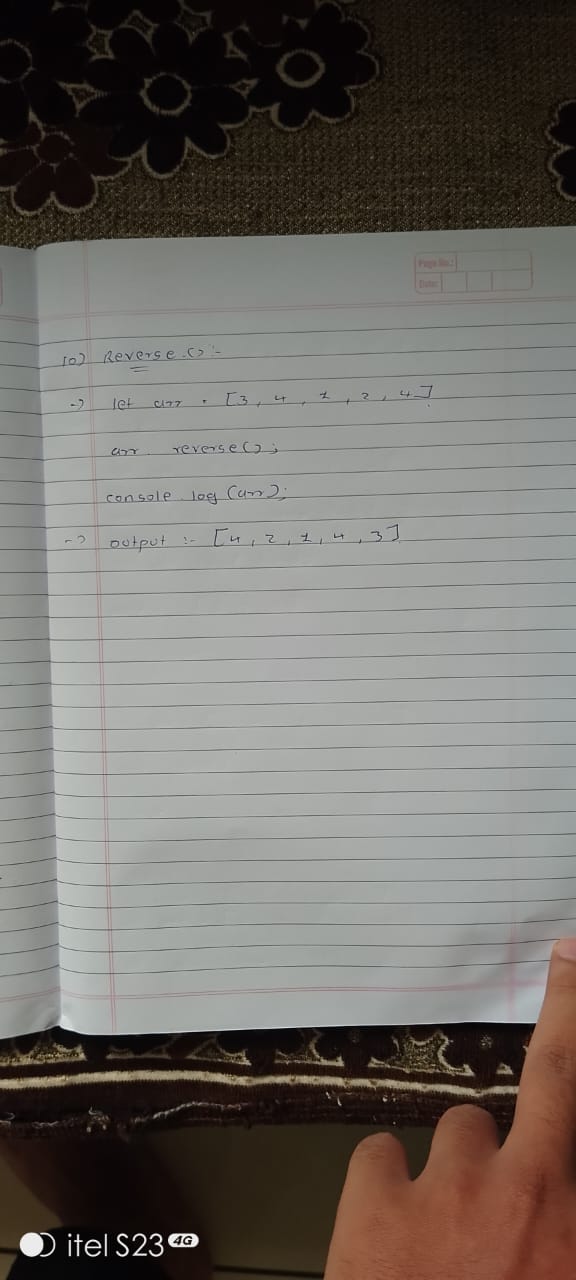 Page No.:
Date:
10) Reverse () :-
-> let arr = [3, 4, 1, 2, 4]
arr. reverse();
console.log(arr);
-> output :- [4, 2, 1, 4, 3]
itel S23 4G